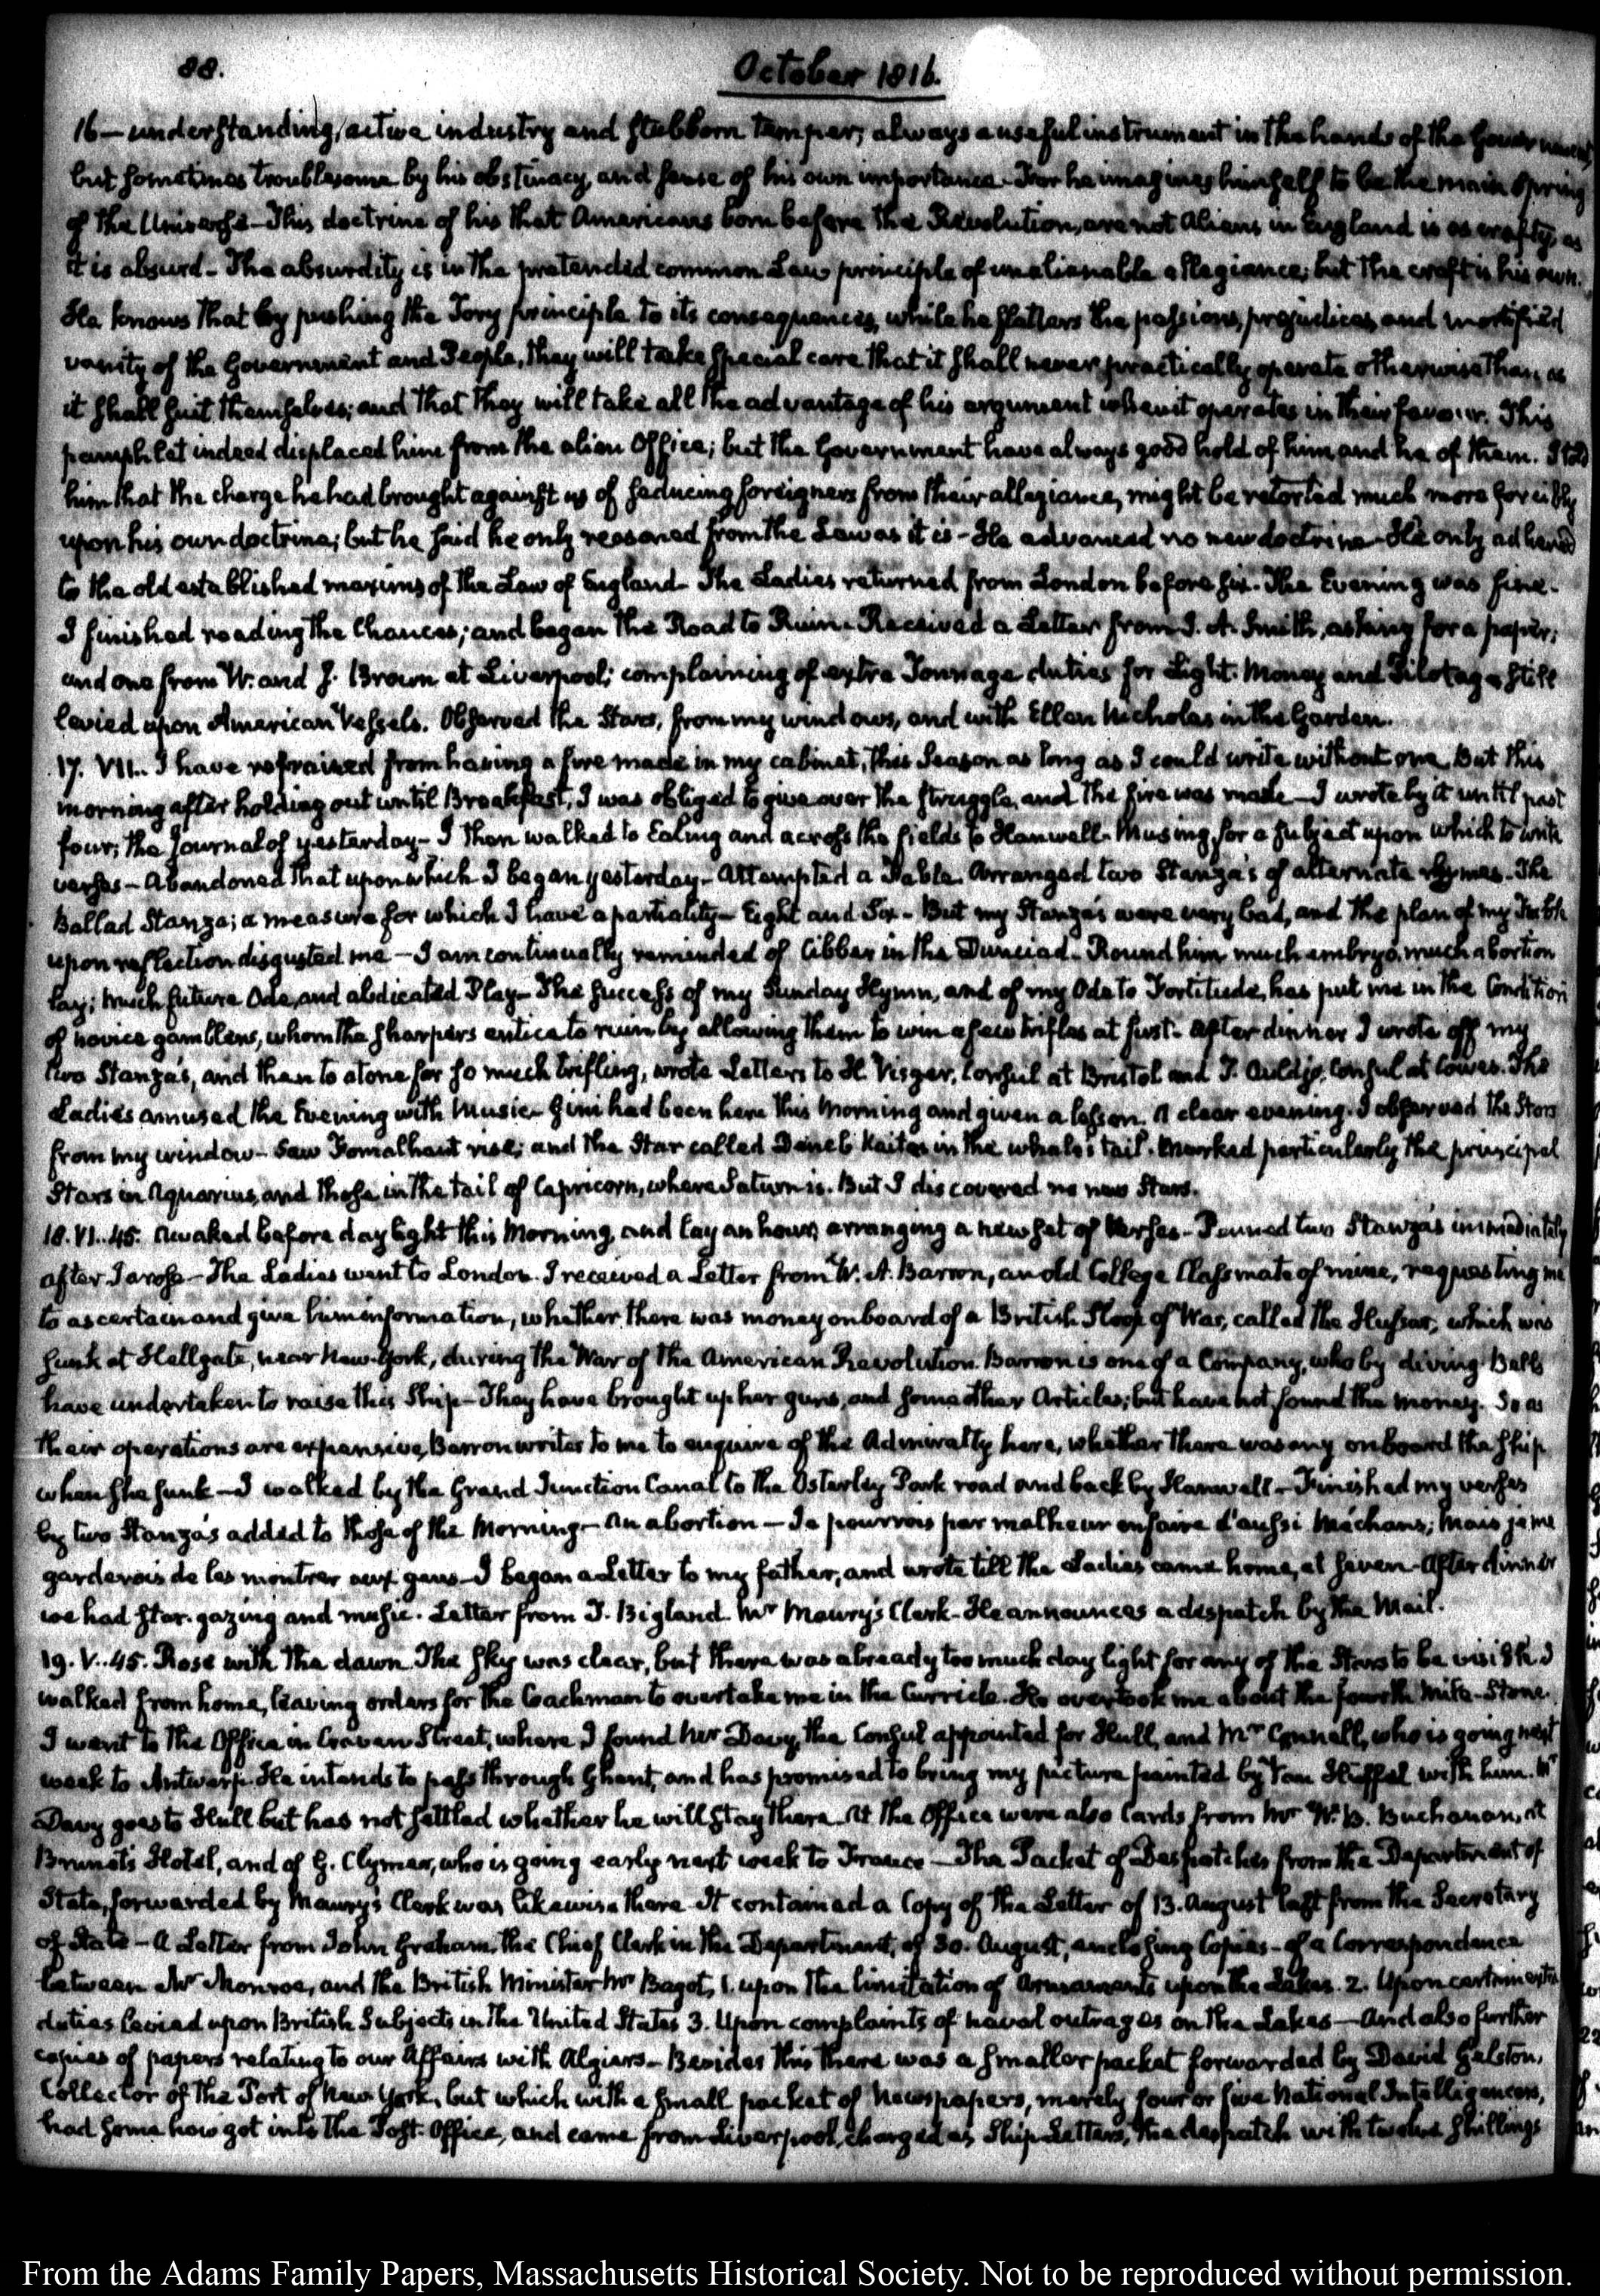 88.
October 1816.
16 — understanding, active industry and stubborn temper; always a useful instrument in the hands of the Government,
but sometimes troublesome by his obstinacy, and sense of his own importance. For he imagines himself to be the main Spring
of the Universe — This doctrine of his that Americans born before the Revolution, are not Aliens in England is as crafty, as
it is absurd. The absurdity is in the pretended common Law principle of unalienable allegiance; but the craft is his own.
He knows that by pushing the Tory principle to its consequences, while he flatters the passions, prejudices, and mortified
vanity of the Government and People, they will take special care that it shall never practically operate otherwise than, as
it shall suit themselves; and that they will take all the advantage of his argument when it operates in their favour. This
pamphlet indeed displaced him from the alien Office; but the Government have always good hold of him and he of them. I told
him that the charge he had brought against us of seducing foreigners from their allegiance, might be retorted much more forcibly
upon his own doctrine; but he said he only reasoned from the Law as it is — He advanced no new doctrine — He only adhered
to the old established maxims of the Law of England — The Ladies returned from London before six. The Evening was fine.
I finished reading the Chances; and began the Road to Ruin. Received a Letter from J. A. Smith, asking for a paper;
and one from W. and J. Brown at Liverpool; complaining of extra Tonnage duties for Light-Money and Pilotage still
levied upon American Vessels. Observed the Stars, from my windows, and with Ellen Nicholas in the Garden.
17. VII.. I have refrained from having a fire made in my cabinet, this Season as long as I could write without one. But this
morning after holding out until Breakfast, I was obliged to give over the struggle, and the fire was made — I wrote by it until past
four; the Journal of yesterday — I then walked to Ealing and across the fields to Hanwell. Musing, for a subject upon which to write
verses — Abandoned that upon which I began yesterday — Attempted a Fable. Arranged two Stanza's of alternate rhymes. The
Ballad Stanza; a measure for which I have a partiality — Eight and Six. But my Stanza's were very bad, and the plan of my Fable
upon reflection disgusted me — I am continually reminded of Cibber in the Dunciad — Round him much embryo, much abortion
lay; Much future Ode, and abdicated Play — The success of my Sunday Hymn, and of my Ode to Fortitude, has put me in the Condition
of novice gamblers, whom the sharpers entice to ruin by allowing them to win a few trifles at first. After dinner I wrote off my
two Stanza's, and then to atone for so much trifling, wrote Letters to H. Visger, Consul at Bristol and T. Auldjo, Consul at Cowes. The
Ladies amused the Evening with Music — Gini had been here this Morning and given a lesson. A clear evening. I observed the Stars
from my window — Saw Fomalhaut rise; and the Star called Deneb Kaitos in the whale's tail. Marked particularly the principal
Stars in Aquarius, and those in the tail of Capricorn, where Saturn is. But I discovered no new Stars.
18. VI..45. Awaked before day light this Morning, and lay an hour, arranging a new set of Verses — Penned two Stanza's immediately
after I arose — The Ladies went to London. I received a Letter from W. A. Barron, an old College Classmate of mine, requesting me
to ascertain and give him information, whether there was money on board of a British Sloop of War, called the Hussar, which was
sunk at Hellgate, near New-York, during the War of the American Revolution. Barron is one of a Company, who by diving Bells
have undertaken to raise this Ship — They have brought up her guns, and some other Articles; but have not found the money. So as
their operations are expensive, Barron writes to me to enquire of the Admiralty here, whether there was any on board the ship
when she sunk — I walked by the Grand Junction Canal to the Osterley Park road and back by Hanwell — Finished my verses
by two Stanza's added to those of the Morning — An abortion — Je pourrois par malheur en faire d'aussi méchans; Mais je me
garderois de les montrer aux gens — I began a Letter to my father, and wrote till the Ladies came home, at seven — After dinner
we had star-gazing and music. Letter from J. Bigland. Mr Maury's Clerk — He announces a despatch by the Mail.
19. V..45. Rose with the dawn. The sky was clear, but there was already too much day light for any of the Stars to be visible. I
walked from home, leaving orders for the Coachman to overtake me in the Curricle. He overtook me about the fourth Mile-Stone.
I went to the Office in Craven Street, where I found Mr Davy, the Consul appointed for Hull, and Mr Connell, who is going next
week to Antwerp. He intends to pass through Ghent, and has promised to bring my picture painted by Van Huffel with him. Mr
Davy goes to Hull but has not settled whether he will stay there. At the Office were also Cards from Mr W. B. Buchanan, at
Brunet's Hotel, and of G. Clymer, who is going early next week to France — The Packet of Despatches from the Department of
State, forwarded by Maury's Clerk was likewise there. It contained a Copy of the Letter of 13. August last from the Secretary
of State — A Letter from John Graham, the Chief Clerk in the Department, of 30. August, enclosing Copies — of a Correspondence
between Mr Monroe, and the British Minister Mr Bagot, 1. upon the limitation of Armaments upon the Lakes. 2. Upon certain extra
duties levied upon British Subjects in the United States 3. Upon complaints of naval outrages on the Lakes — And also further
copies of papers relating to our Affairs with Algiers — Besides this there was a smaller packet forwarded by David Gelston,
Collector of the Port of New York, but which with a small packet of Newspapers, merely four or five National Intelligencers,
had some how got into the Post-Office, and came from Liverpool, charged as Ship Letters, the despatch with twelve shillings
From the Adams Family Papers, Massachusetts Historical Society. Not to be reproduced without permission.